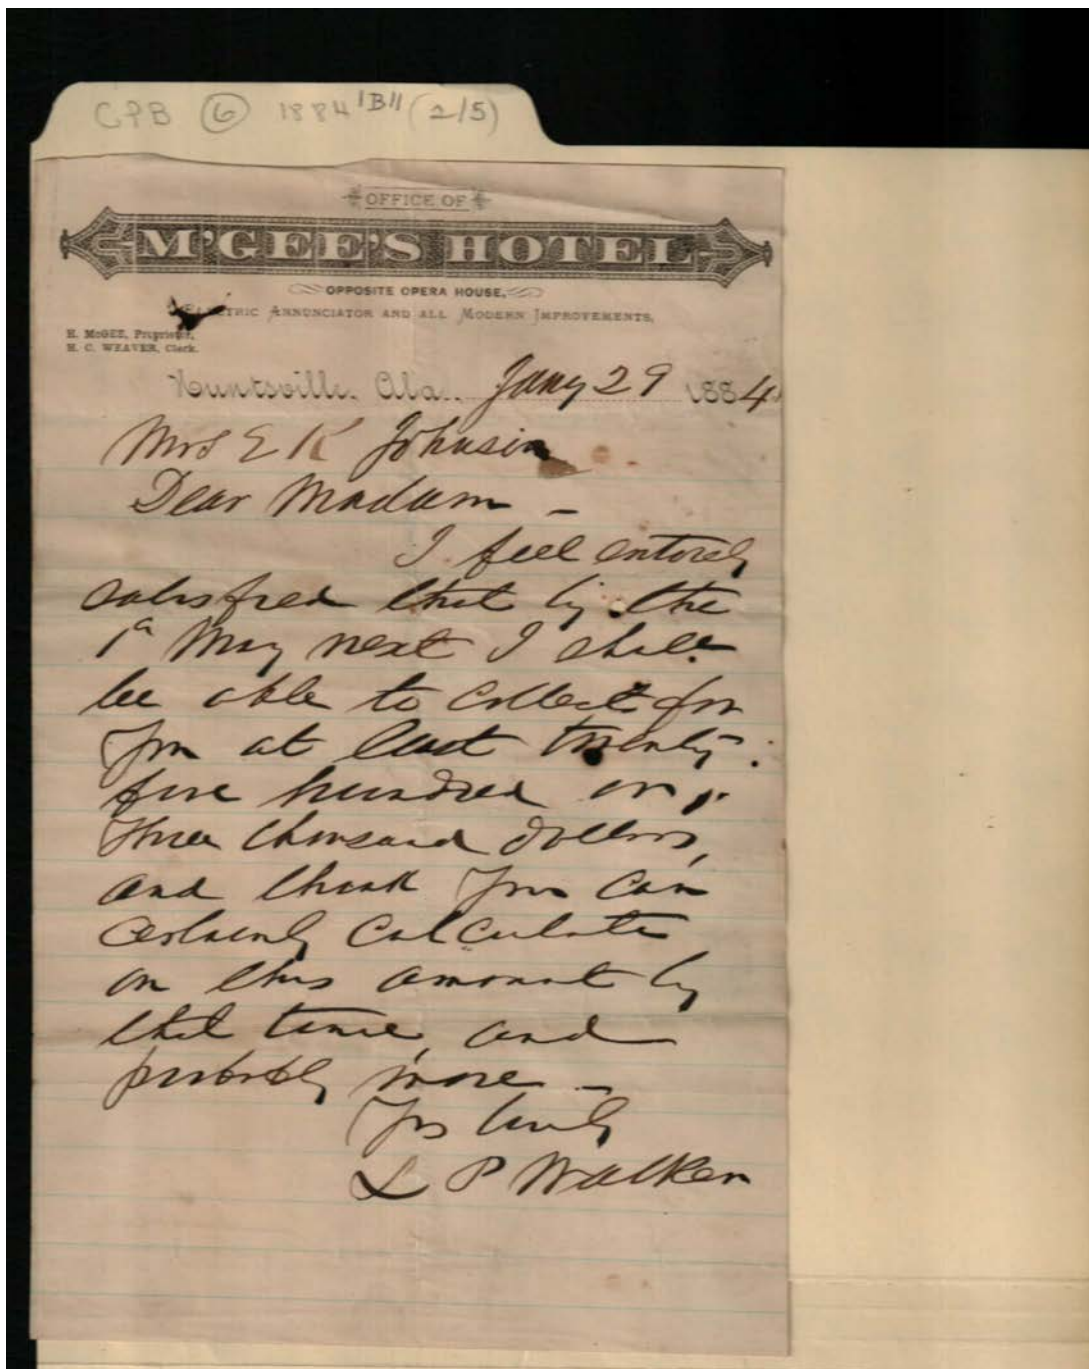 CPB 6 1884 "B" (2/5)
OFFICE OF
M'GEE'S HOTEL
OPPOSITE OPERA HOUSE,
ELECTRIC ANNUNCIATOR AND ALL MODERN IMPROVEMENTS.
H. McGEE, Proprietor,
H. C. WEAVER, Clerk.
Huntsville, Ala., Jany 29 1884
Mrs E K Johnson
Dear Madam -
I feel entirely
satisfied that by the
1st May next I shall
be able to collect for
you at least twenty-
five hundred or
three thousand dollars,
and think you can
certainly calculate
on this amount by
that time, and
probably more -
Yrs truly
L P Walker